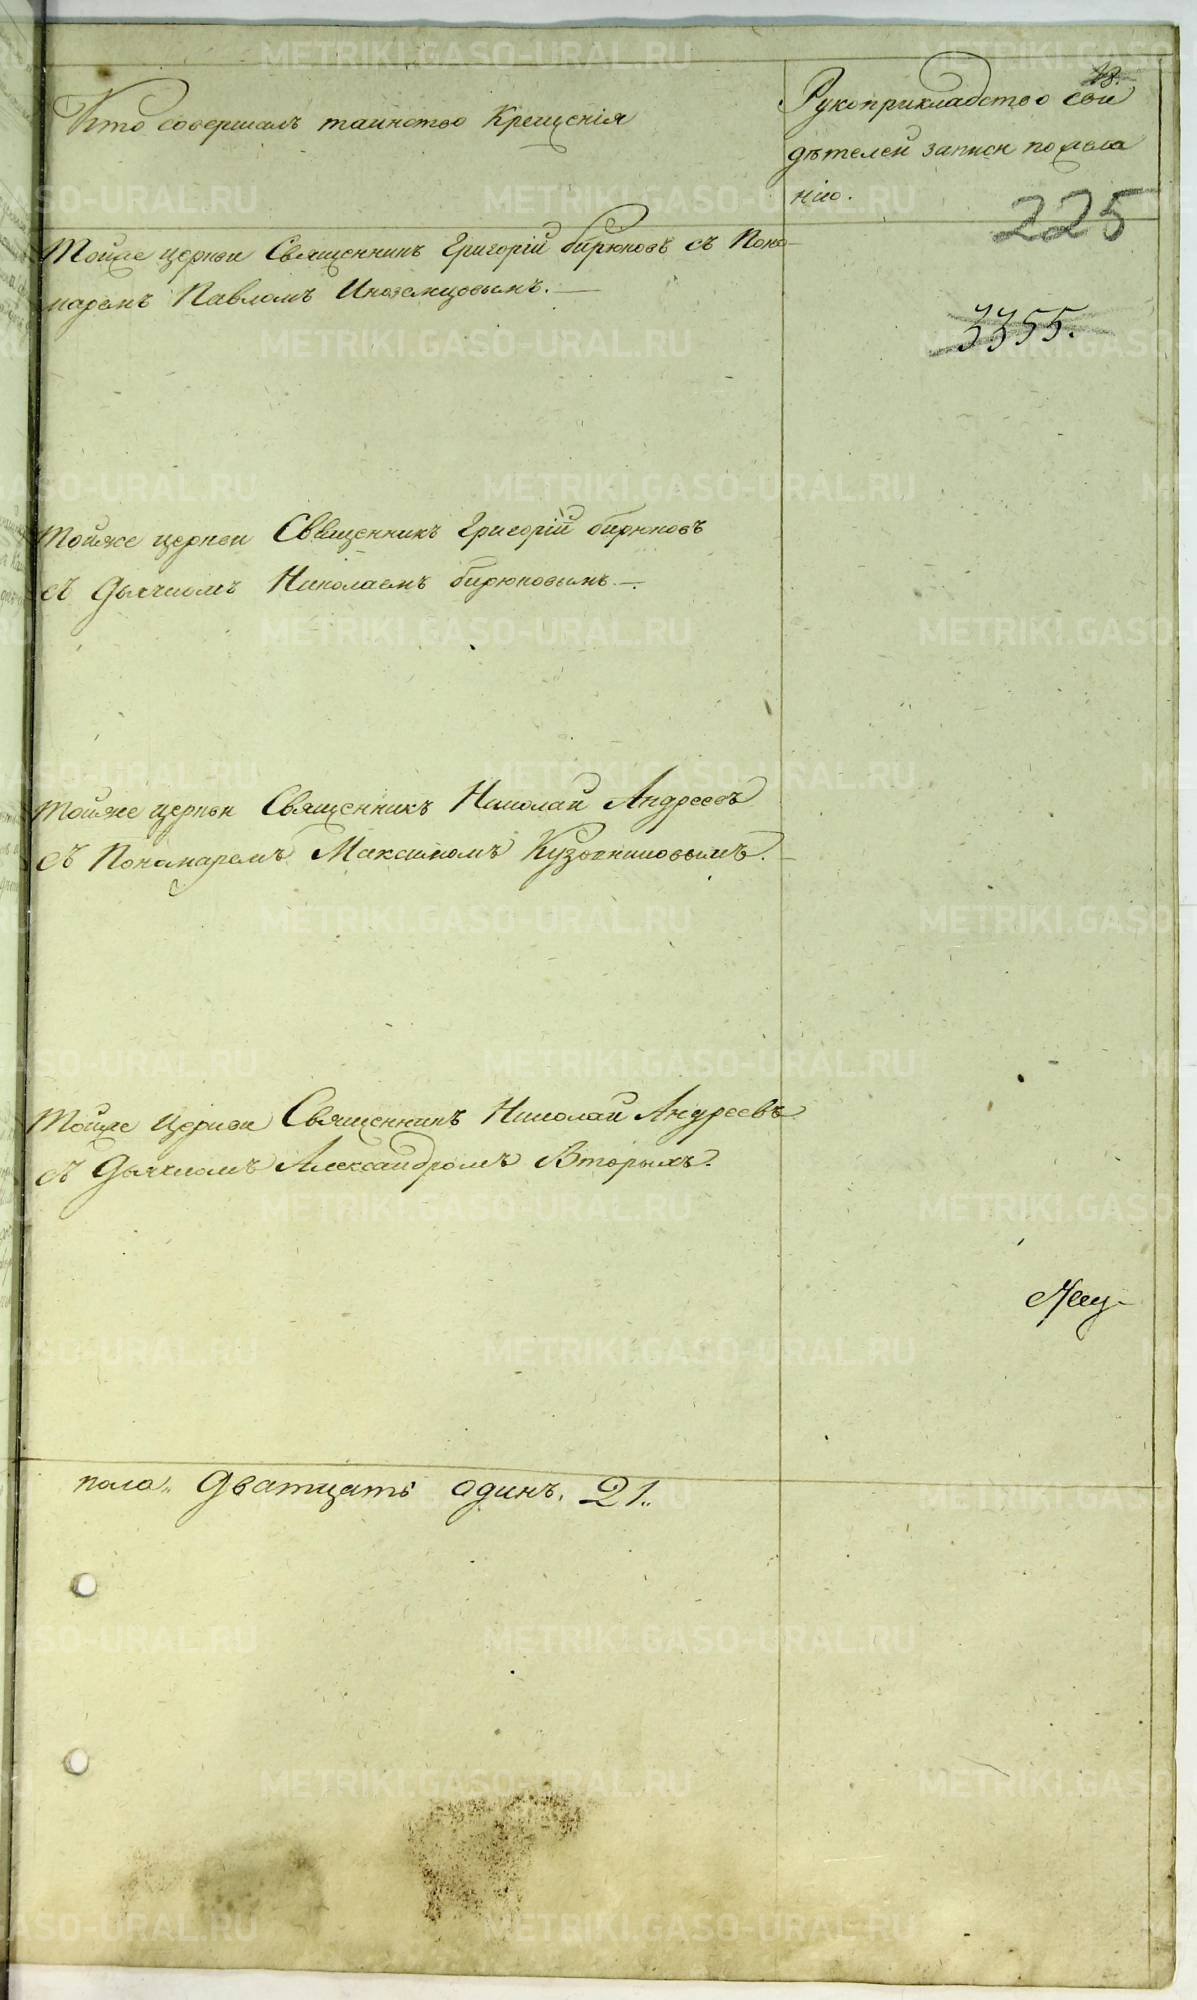 Кто совершалъ таинство Крещенія
Рукоприкладство сви
дѣтелей записи по жела
нію.
225
3355.
Тойже церкви Священникъ Григорій Бирюковъ съ Поно
маремъ Павломъ Иноземцовымъ.
Тойже церкви Священникъ Григорій Бирюковъ
съ Дьячкомъ Николаемъ Бирюковымъ.
Тойже церкви Священникъ Николай Андреевъ
съ Пономаремъ Максимомъ Кузовниковымъ.
Тойже Церкви Священникъ Николай Андреевъ
съ Дьячкомъ Александромъ Вторыхъ.
пола„ Дватцать одинъ. 21„
METRIKI.GASO-URAL.RU